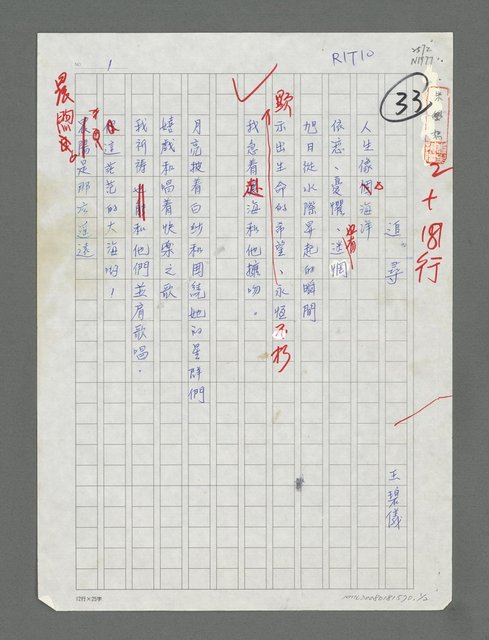 R1T10
25/2
N1977
33
NO. 1
2+18行
追尋
王碧儀
人生像個海洋
依戀、憂懼、沒有迷惘
旭日從水際昇起的瞬間
顯示出生命的希望、永恆不朽
我急着赴海和他擁吻。
月亮披着白紗和圍繞她的星群們
嬉戲和唱着快樂之歌
我祈禱和他們並肩歌唱。
這茫茫的大海喲!
晨是那麼遙遠
12行×25字